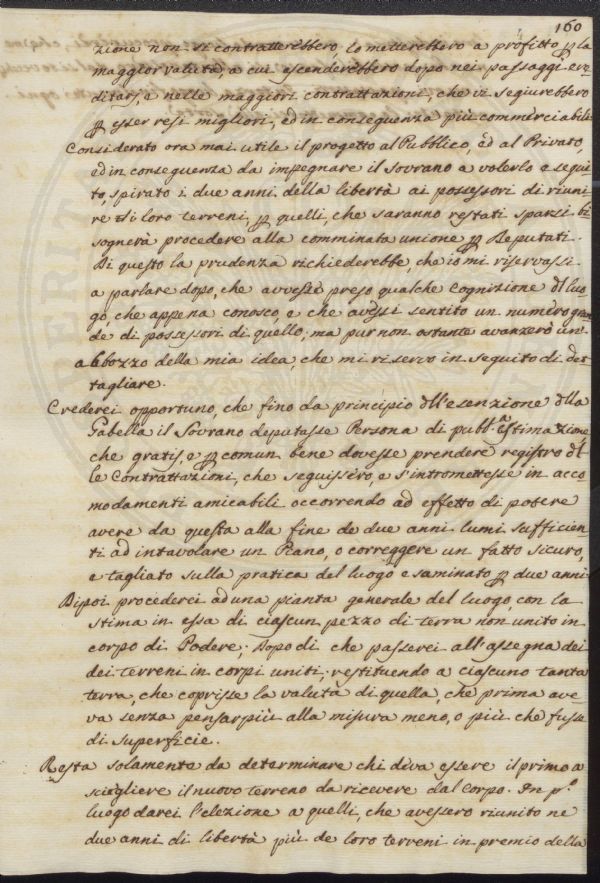 160
zione non si contratterebbero, lo metterebbero a profitto p la
maggior valuta, a cui ascenderebbero dopo nei passaggi ere
ditarj, e nelle maggiori contrattazioni, che vi seguirebbero
p esser resi migliori, ed in conseguenza più commerciabili
Considerato ora mai utile il progetto al Pubblico, ed al Privato,
ed in conseguenza da impegnare il Sovrano a volerlo eseguì
to, spirato i due anni della libertà ai possessori di riuni
re i loro terreni, p quelli, che saranno restati sparsi bi
sognerà procedere alla comminata unione p Deputati.
Di questo la prudenza richiederebbe, che io mi riservassi
a parlare dopo, che avessi preso qualche Cognizione dl luo
go, che appena conosco, e che avessi sentito un numero gran
de di possessori di quello, ma pur non ostante avanzerò un
abbozzo della mia idea, che mi riservo in seguito di det
tagliare.
Crederei opportuno, che fino da principio dll'esenzione dlla
Gabella il Sovrano deputasse Persona di pubb.ª estimazione
che gratis, e p comun bene dovesse prendere registro dl
le Contrattazioni, che seguissero, e s'intromettesse in acco
modamenti amicabili occorrendo ad effetto di potere
avere da questa alla fine de due anni lumi sufficien
ti ad intavolare un Piano, o correggere un fatto sicuro,
e tagliato sulla pratica del luogo esaminato p due anni
Dipoi procederei ad una pianta generale del luogo, con la
stima in essa di ciascun pezzo di terra non unito in
corpo di Podere; Dopo di che passerei all'assegna dei
dei terreni in corpi uniti, restituendo a ciascuno tanta
terra, che coprisse la valuta di quella, che prima ave-
va senza pensar più alla misura meno, o più che fusse
di superficie.
Resta solamente da determinare chi diva essere il primo a
sciegliere il nuovo terreno da ricevere dal Corpo. In p.º
luogo darei l'elezione a quelli, che avessero riunito ne
due anni di libertà più de loro terreni in premio della